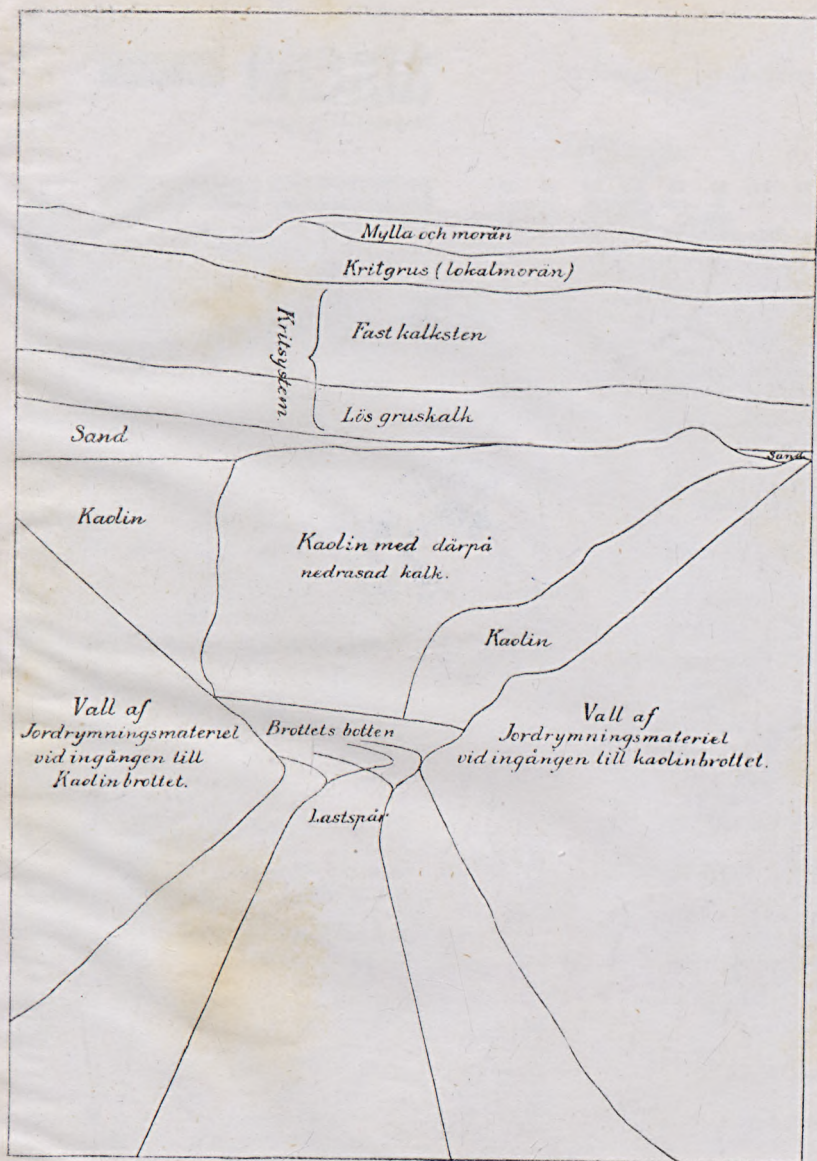 Mylla och morän
Kritgrus (lokalmorän)
Kritsystem.
Fast kalksten
Lös gruskalk
Sand
Sand
Kaolin
Kaolin med därpå
nedrasad kalk.
Kaolin
Vall af
Jordrymningsmateriel
vid ingången till
Kaolinbrottet.
Brottets botten
Vall af
Jordrymningsmateriel
vid ingången till kaolinbrottet.
Lastspår